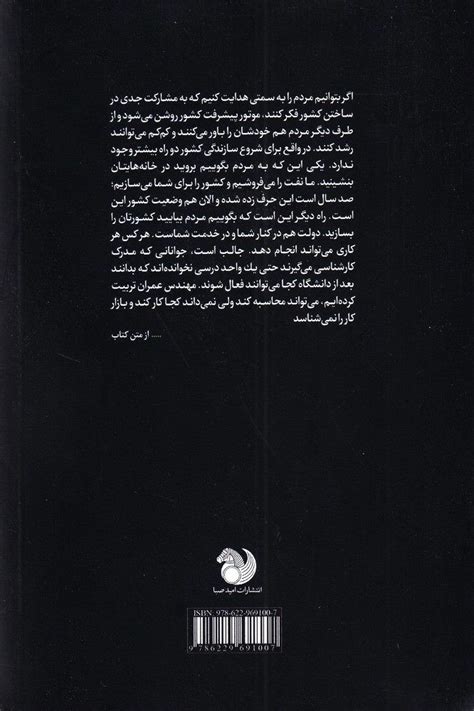 اگر بتوانیم مردم را به سمتی هدایت کنیم که به مشارکت جدی در
ساختن کشور فکر کنند، موتور پیشرفت کشور روشن می‌شود و از
طرف دیگر مردم هم خودشان را باور می‌کنند و کم‌کم می‌توانند
رشد کنند. در واقع برای شروع سازندگی کشور دو راه بیشتر وجود
ندارد. یکی این که به مردم بگوییم بروید در خانه‌هایتان
بنشینید. ما نفت را می‌فروشیم و کشور را برای شما می‌سازیم؛
صد سال است این حرف زده شده و الان هم وضعیت کشور این
است. راه دیگر این است که بگوییم مردم بیایید کشورتان را
بسازید. دولت هم در کنار شما و در خدمت شماست. هر کس هر
کاری می‌تواند انجام دهد. جالب است، جوانانی که مدرک
کارشناسی می‌گیرند حتی یك واحد درسی نخوانده‌اند که بدانند
بعد از دانشگاه کجا می‌توانند فعال شوند. مهندس عمران تربیت
کرده‌ایم، می‌تواند محاسبه کند ولی نمی‌داند کجا کار کند و بازار
کار را نمی‌شناسد
..... از متن کتاب
انتشارات امید صبا
ISBN: 978-622-969100-7
9 786229 691007